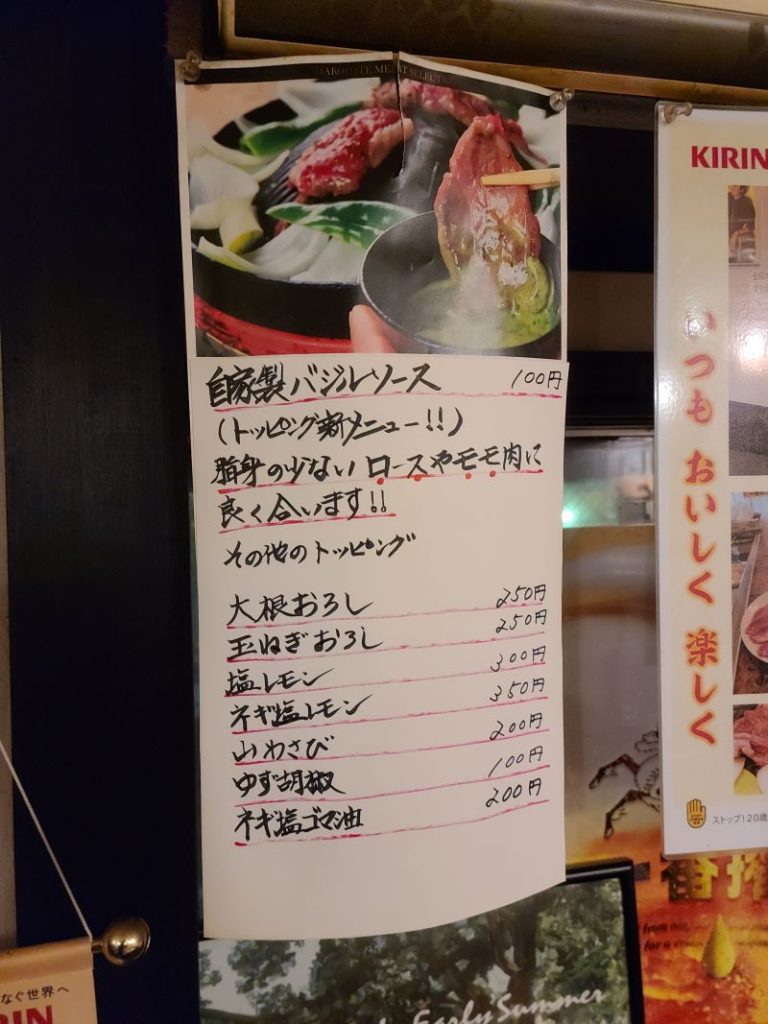 HAKODATE MEAT SELECTION
自家製バジルソース 100円
(トッピング新メニュー!!)
脂身の少ないロースやモモ肉に
良く合います!!
その他のトッピング
大根おろし 250円
玉ねぎおろし 250円
塩レモン 300円
ネギ塩レモン 350円
山わさび 200円
ゆず胡椒 100円
ネギ塩ゴマ油 200円
KIRIN
いつも おいしく 楽しく
ストップ!20歳
一番搾
Early Summer
なぐ世界へ
RIN